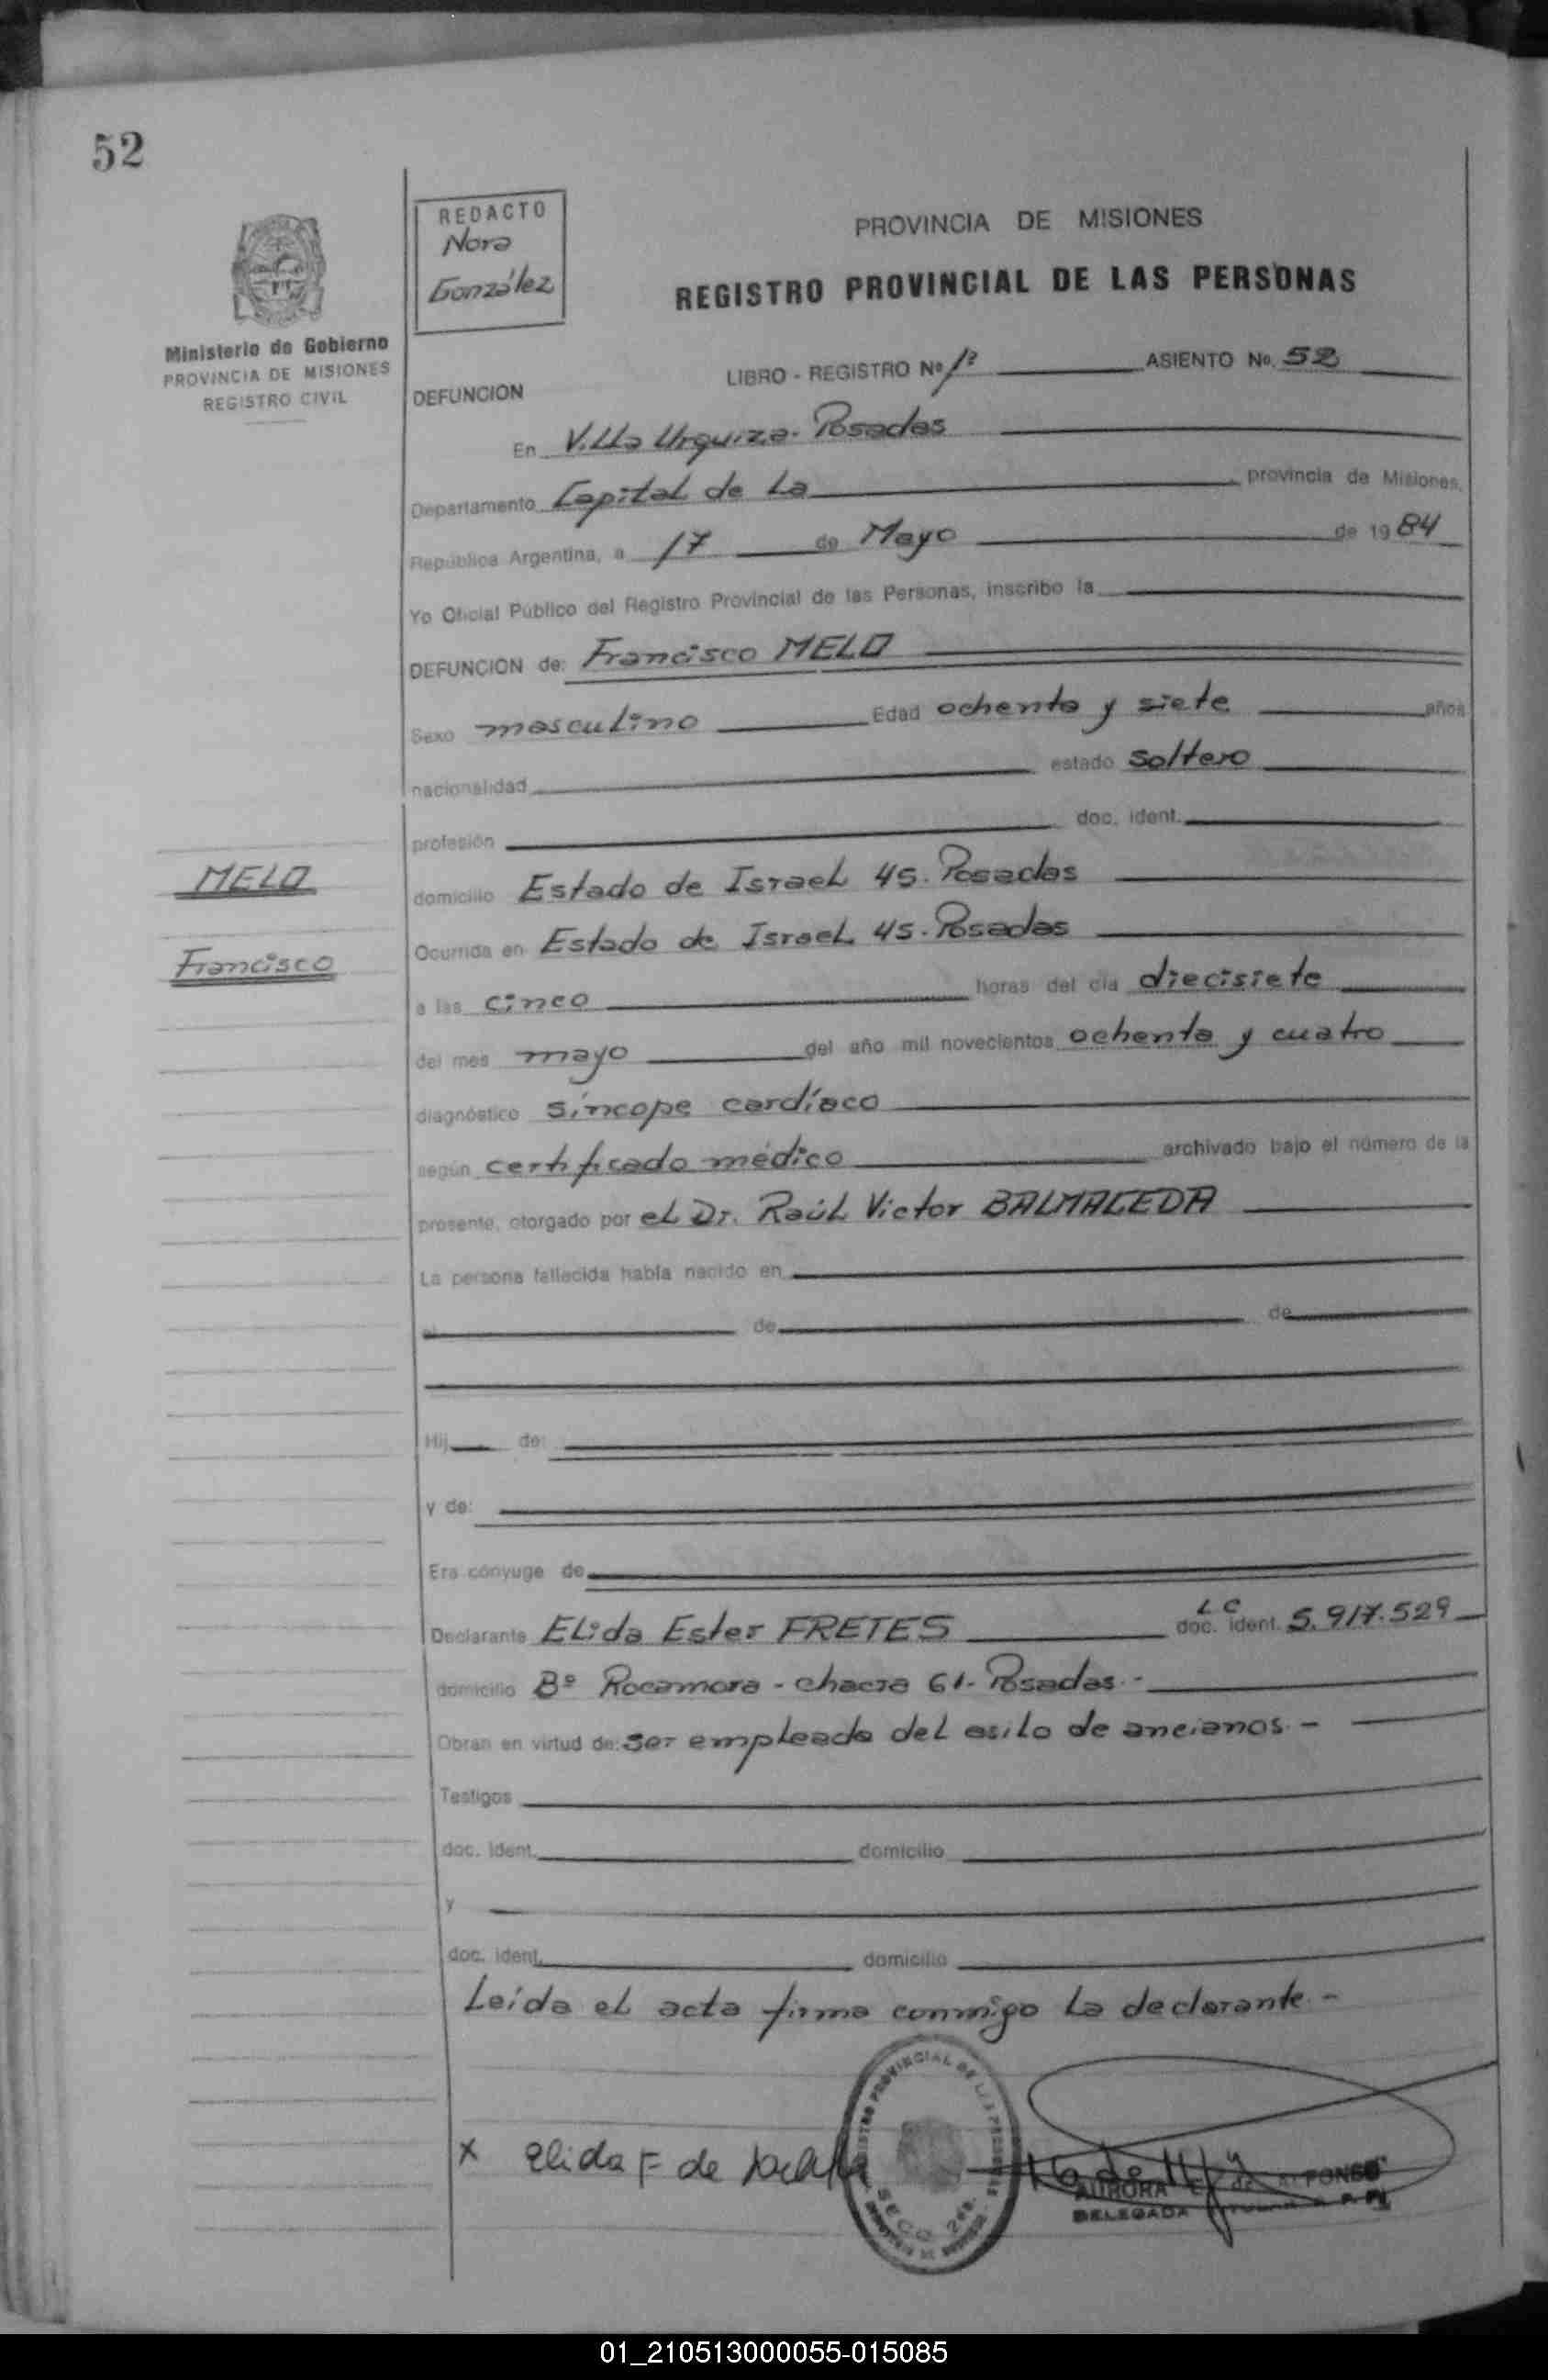 52
REDACTO
Nora
González
PROVINCIA DE MISIONES
REGISTRO PROVINCIAL DE LAS PERSONAS
Ministerio de Gobierno
PROVINCIA DE MISIONES
REGISTRO CIVIL
LIBRO - REGISTRO Nº 1º ASIENTO No. 52
DEFUNCION
En Villa Urquiza. Posadas
Departamento Capital de La provincia de Misiones,
República Argentina, a 17 de Mayo de 1984
Yo Oficial Público del Registro Provincial de las Personas, inscribo la
DEFUNCION de: Francisco MELO
Sexo masculino Edad ochenta y siete años
nacionalidad estado soltero
profesión doc. ident.
MELO
domicilio Estado de Israel 45. Posadas
Francisco
Ocurrida en Estado de Israel 45. Posadas
a las cinco horas del día diecisiete
del mes mayo del año mil novecientos ochenta y cuatro
diagnóstico síncope cardíaco
según certificado médico archivado bajo el número de la
presente, otorgado por el Dr. Raúl Victor BALMACEDA
La persona fallecida había nacido en
el de de
Hij de:
y de:
Era cónyuge de
Declarante Elida Ester FRETES LC doc. ident. 5.917.529
domicilio Bº Rocamora - chacra 61. Posadas.-
Obran en virtud de: ser empleada del asilo de ancianos.-
Testigos
doc. ident. domicilio
y
doc. ident. domicilio
Leída el acta firma conmigo la declarante.-
x Elida F de
REGISTRO PROVINCIAL DE LAS PERSONAS
SECC. 2da.
PROVINCIA DE MISIONES
AURORA de ALFONSO
DELEGADA
01_210513000055-015085